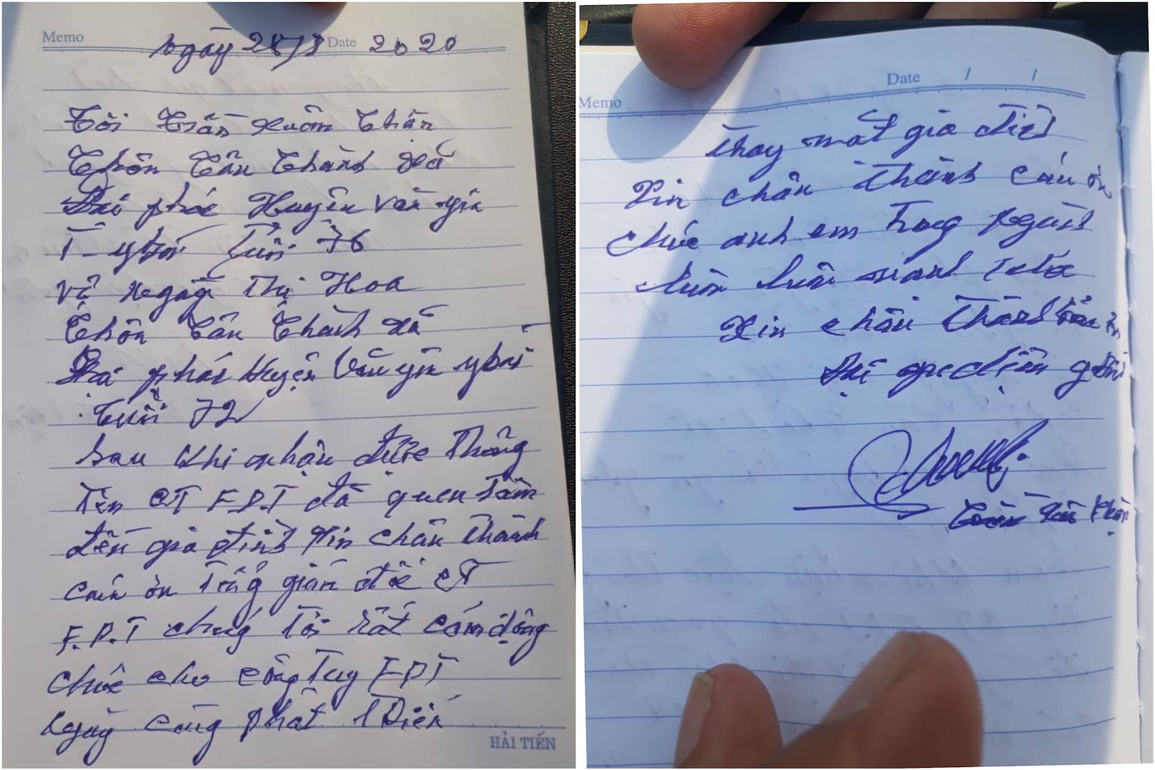 Memo Date
Ngày 28/8 2020
Tôi Trần Xuân
Thôn Tân Thành xã
phác Huyện Văn yên
T- ybái Tuổi 76
vợ Thị Hoa
Thôn Tân Thành xã
phác Huyện Văn yên ybái
Tuổi 72
Sau khi nhận được thông
Tin CT F.P.T đã quan Tâm
đến gia đình xin chân thành
cám ơn Tổng giám đốc CT
F.P.T chúng Tôi rất cám động
chúc cho công Ty FPT
ngày càng phát Triển
HẢI TIẾN
Memo Date / /
Thay mặt gia đình
Xin chân thành cám ơn
chúc anh em trong người
luôn luôn mạnh
Xin chân thành cảm ơn
Đại diện